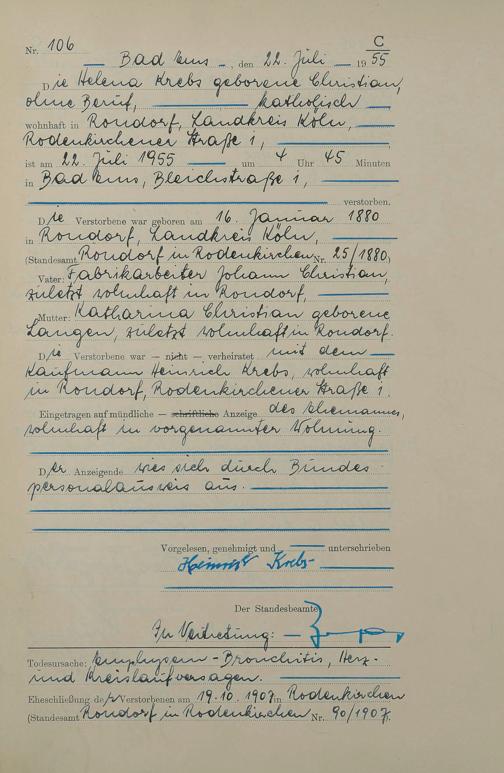 C
Nr. 106
Bad Ems, den 22. Juli 1955
Die Helena Krebs geborene Christian,
ohne Beruf, katholisch
wohnhaft in Rondorf, Landkreis Köln,
Rodenkirchener Straße 1,
ist am 22. Juli 1955 um 4 Uhr 45 Minuten
in Bad Ems, Bleichstraße 1,
verstorben.
Die Verstorbene war geboren am 16. Januar 1880
in Rondorf, Landkreis Köln,
(Standesamt Rondorf in Rodenkirchen Nr. 25/1880)
Vater: Fabrikarbeiter Johann Christian,
zuletzt wohnhaft in Rondorf,
Mutter: Katharina Christian geborene
Langen, zuletzt wohnhaft in Rondorf.
Die Verstorbene war — nicht — verheiratet mit dem
Kaufmann Heinrich Krebs, wohnhaft
in Rondorf, Rodenkirchener Straße 1.
Eingetragen auf mündliche — schriftliche Anzeige des Ehemannes,
wohnhaft in vorgenannter Wohnung.
Der Anzeigende wies sich durch Bundes-
personalausweis aus.
Vorgelesen, genehmigt und unterschrieben
Heinrich Krebs
Der Standesbeamte
In Vertretung:
Todesursache: Emphysem-Bronchitis, Herz-
und Kreislaufversagen.
Eheschließung der Verstorbenen am 19.10.1907 in Rodenkirchen
(Standesamt Rondorf in Rodenkirchen Nr. 90/1907).